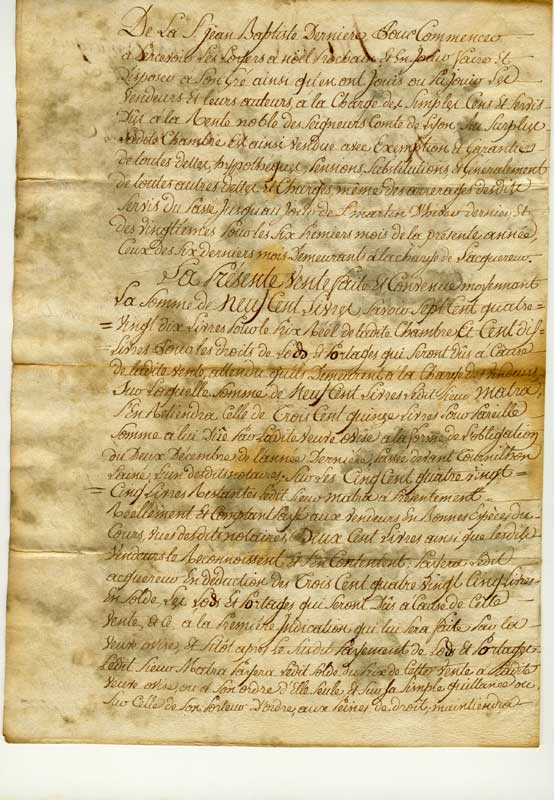 De La St jean Baptiste Derniere, Pour Commencer
a Percevoir Les Loyers a noël Prochain, et En Jouir faire et
Disposer a Son Gré ainsi qu'en ont Jouis ou Pû Jouir Les
Vendeurs Et leurs auteurs, a la Charge des Simples Cens et Servis
Dûs a la Rente noble des Seigneurs Comte de Lyon, Au Surplus
Ladite Chambre Est ainsi vendue avec Exemption et Garantie
de toutes dettes, hypotheques, Pensions, Substitutions et Generalement
de toutes autres dettes et Charges même des arrerages desdits
Servis du Passé Jusqu'au Jour de St martin D'hiver dernier, Et
des vingtiemes Pour les Six Premiers mois de la présente année,
Ceux des Six derniers mois Demeurants a la charge de L'acquereur.
La Présente Vente faite et Convenue moyennant
La Somme de Neuf Cent Livres Savoir Sept Cent quatre=
=Vingt dix Livres Pour le Prix Réel de ladite Chambre, Et Cent dix
=Livres Pour les droits de Lods Et Portages qui Seront dûs a Cause
de ladite vente, attendu qu'ils Demeurent a la Charge des Vendeurs
Sur Laquelle Somme de Neuf Cent Livres Ledit Sieur Matra,
S'en Retiendra Celle de Trois Cent quinze Livres Pour Pareille
Somme a lui Dûe Par Ladite Veuve ovise a la forme de L'obligation
du Deux Décembre de L'année Derniere, Passée devant
L'ainé, L'un desdits notaires. Sur Les Cinq Cent quatre vingt
=Cinq Livres Restantes Ledit Sieur Matra a Présentement
Réellement et Comptant Payé aux vendeurs En Bonnes Espèces du
Cours, vües desdits notaires, Deux Cent Livres ainsi que lesdits
Vendeurs le Reconnoissent et S'en Contentent, Payera Ledit
acquereur En déduction des Trois Cent quatre Vingt Cinq Livres
En Solde, Les Lods Et Portages qui Seront Dûs a Cause de Cette
Vente, et Ce a la Premiere Indication qui lui Sera faite Par la
Veuve ovise, et Sitot après le Susdit Payement de Lods et Portages
Ledit Sieur Matra Payera Ledit Solde du Prix de Cette Vente a Ladite
Veuve ovise, ou a Son ordre d'Elle Seule et Sur Sa Simple quittance ou
Sur Celle de Son Porteur D'ordre, aux Peines de droit, maintiendra